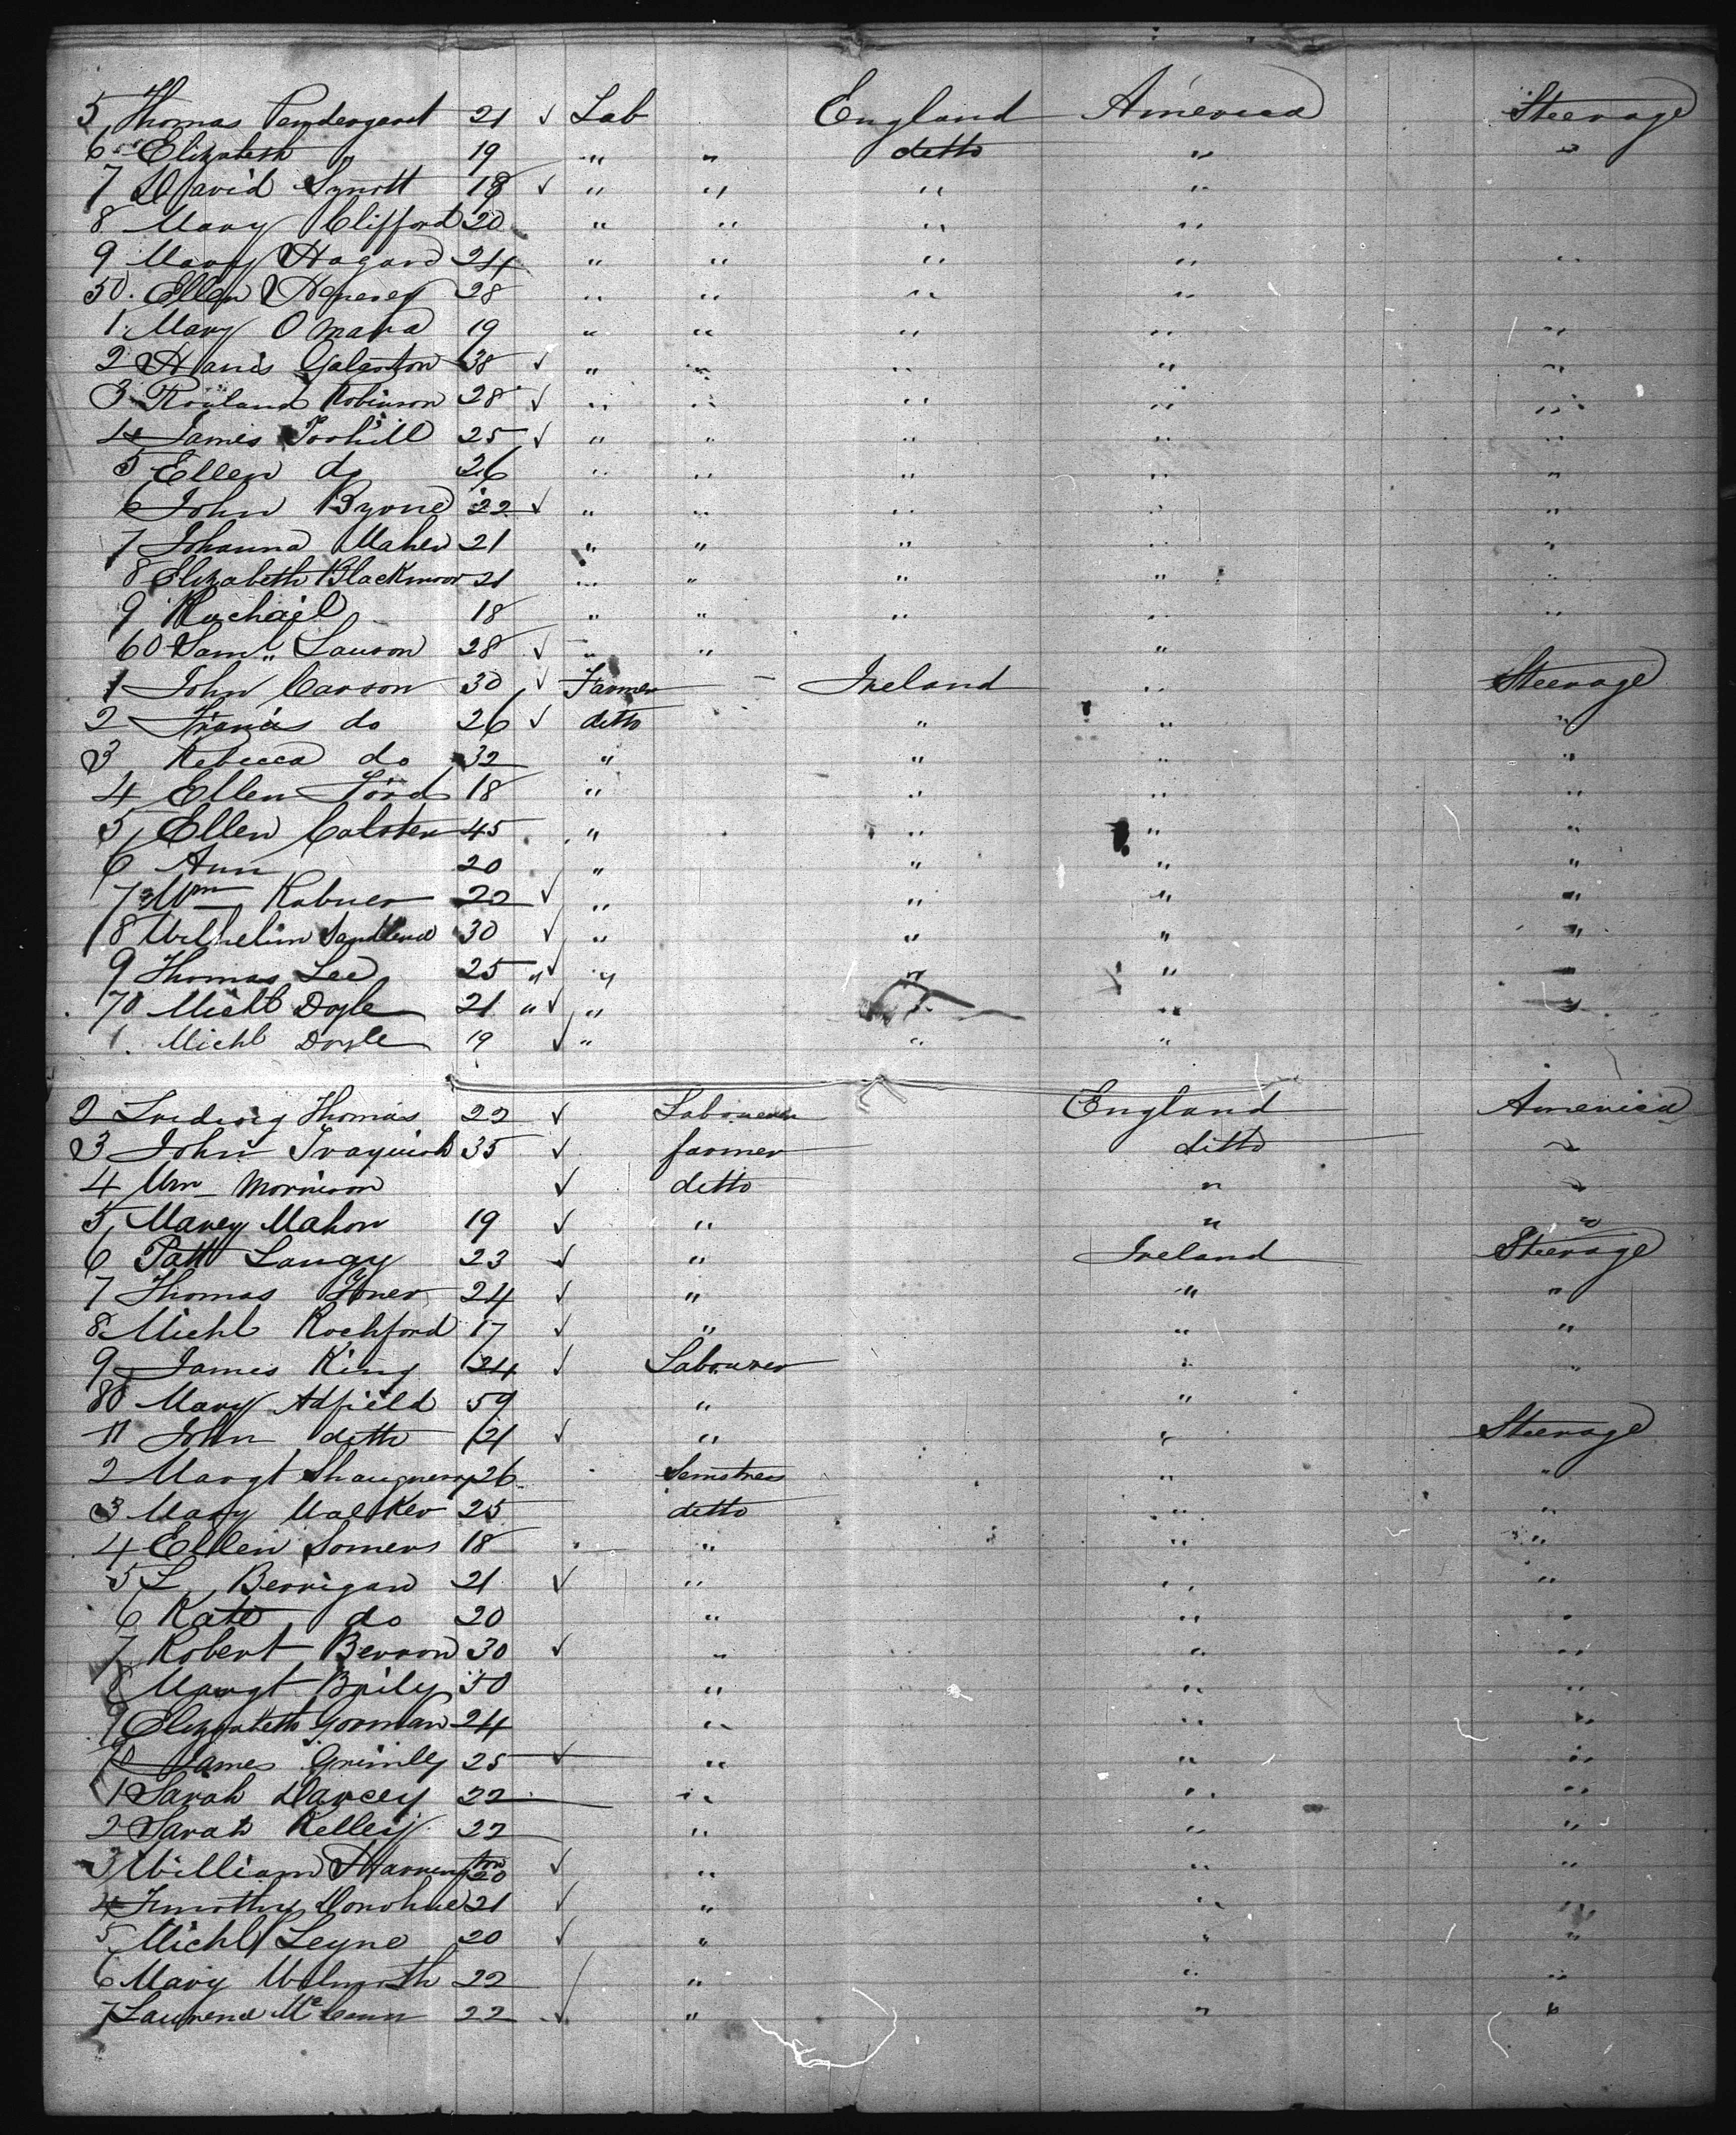 5 Thomas Pendergast 21 ✓ Lab England America Steerage
6 Elizabeth " 19 " " ditto " "
7 David Synott 18 ✓ " " " "
8 Mary Clifford 20 " " " "
9 Mary Hagard 24 " " " " "
50. Ellen 28 " " " "
1 Mary O Mara 19 " " " " "
2 Galaston 38 ✓ " " " " "
3 Rouland Robinson 28 ✓ " " " " "
4 James Toohill 25 ✓ " " " " "
5 Ellen do 26 " " " " "
6 John Byrne 22 ✓ " " " " "
7 Johanna Maher 21 " " " " "
8 Elizabeth Blackmoor 21 " " " " "
9 Rachail 18 " " " " "
60 Saml. Lauson 28 ✓ " " "
1 John Carson 30 ✓ Farmer Ireland " Steerage
2 Francis do 26 ✓ ditto " " "
3 Rebecca do 32 " " " "
4 Ellen Ford 18 " " " "
5 Ellen Calsten 45 " " " "
6 Ann 20 " " " "
7 Wm Rabner 22 ✓ " " " "
8 Wilhelim 30 ✓ " " " "
9 Thomas Lee 25 " ✓ " " " "
70 Michl Doyle 21 " ✓ " " " "
1. Michl Doyle 19 ✓ " " "
2 Ludwig Thomas 22 ✓ Labourer England America
3 John 35 ✓ farmer ditto "
4 Wm Morrison ✓ ditto " "
5 Marey Mahon 19 ✓ " " "
6 Patt Langy 23 ✓ " Ireland Steerage
7 Thomas 24 ✓ " " "
8 Michl Rochford 17 ✓ " " "
9 James King 24 ✓ Labourer " "
80 Mary Adfield 59 " "
11 John ditto 21 ✓ " " Steerage
2 Margt 26 Semstress " "
3 Mary Walker 25 ditto " "
4 Ellen Somers 18 " " "
5 L. Berrigan 21 ✓ " " "
6 Kate do 20 " " "
7 Robert Berron 30 ✓ " " "
8 Margt Baily 50 " " "
9 Elizabeth Gorman 24 " " "
James Grimly 25 ✓ " " "
1 Sarah Darcey 22 " " "
2 Sarah Kelley 22 " " "
3 William Harrington 20 ✓ " " "
4 Timothy Donohue 21 ✓ " " "
5 Michl Leyne 20 ✓ " " "
6 Mary 22 " " "
7 Lawrence McCann 22 ✓ " " "